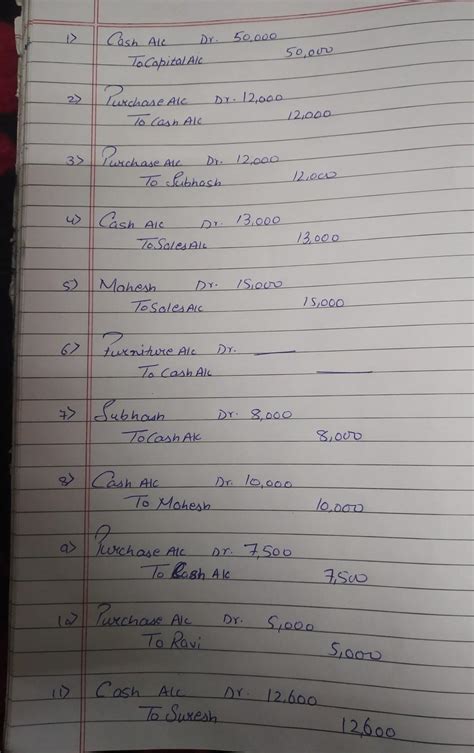 1) Cash A/c Dr. 50,000
To Capital A/c 50,000
2) Purchase A/c Dr. 12,000
To Cash A/c 12,000
3) Purchase A/c Dr. 12,000
To Subhash 12,000
4) Cash A/c Dr. 13,000
To Sales A/c 13,000
5) Mahesh Dr. 15,000
To Sales A/c 15,000
6) Furniture A/c Dr. ___
To Cash A/c ___
7) Subhash Dr. 8,000
To Cash A/c 8,000
8) Cash A/c Dr. 10,000
To Mahesh 10,000
9) Purchase A/c Dr. 7,500
To Cash A/c 7,500
10) Purchase A/c Dr. 5,000
To Ravi 5,000
11) Cash A/c Dr. 12,600
To Suresh 12,600